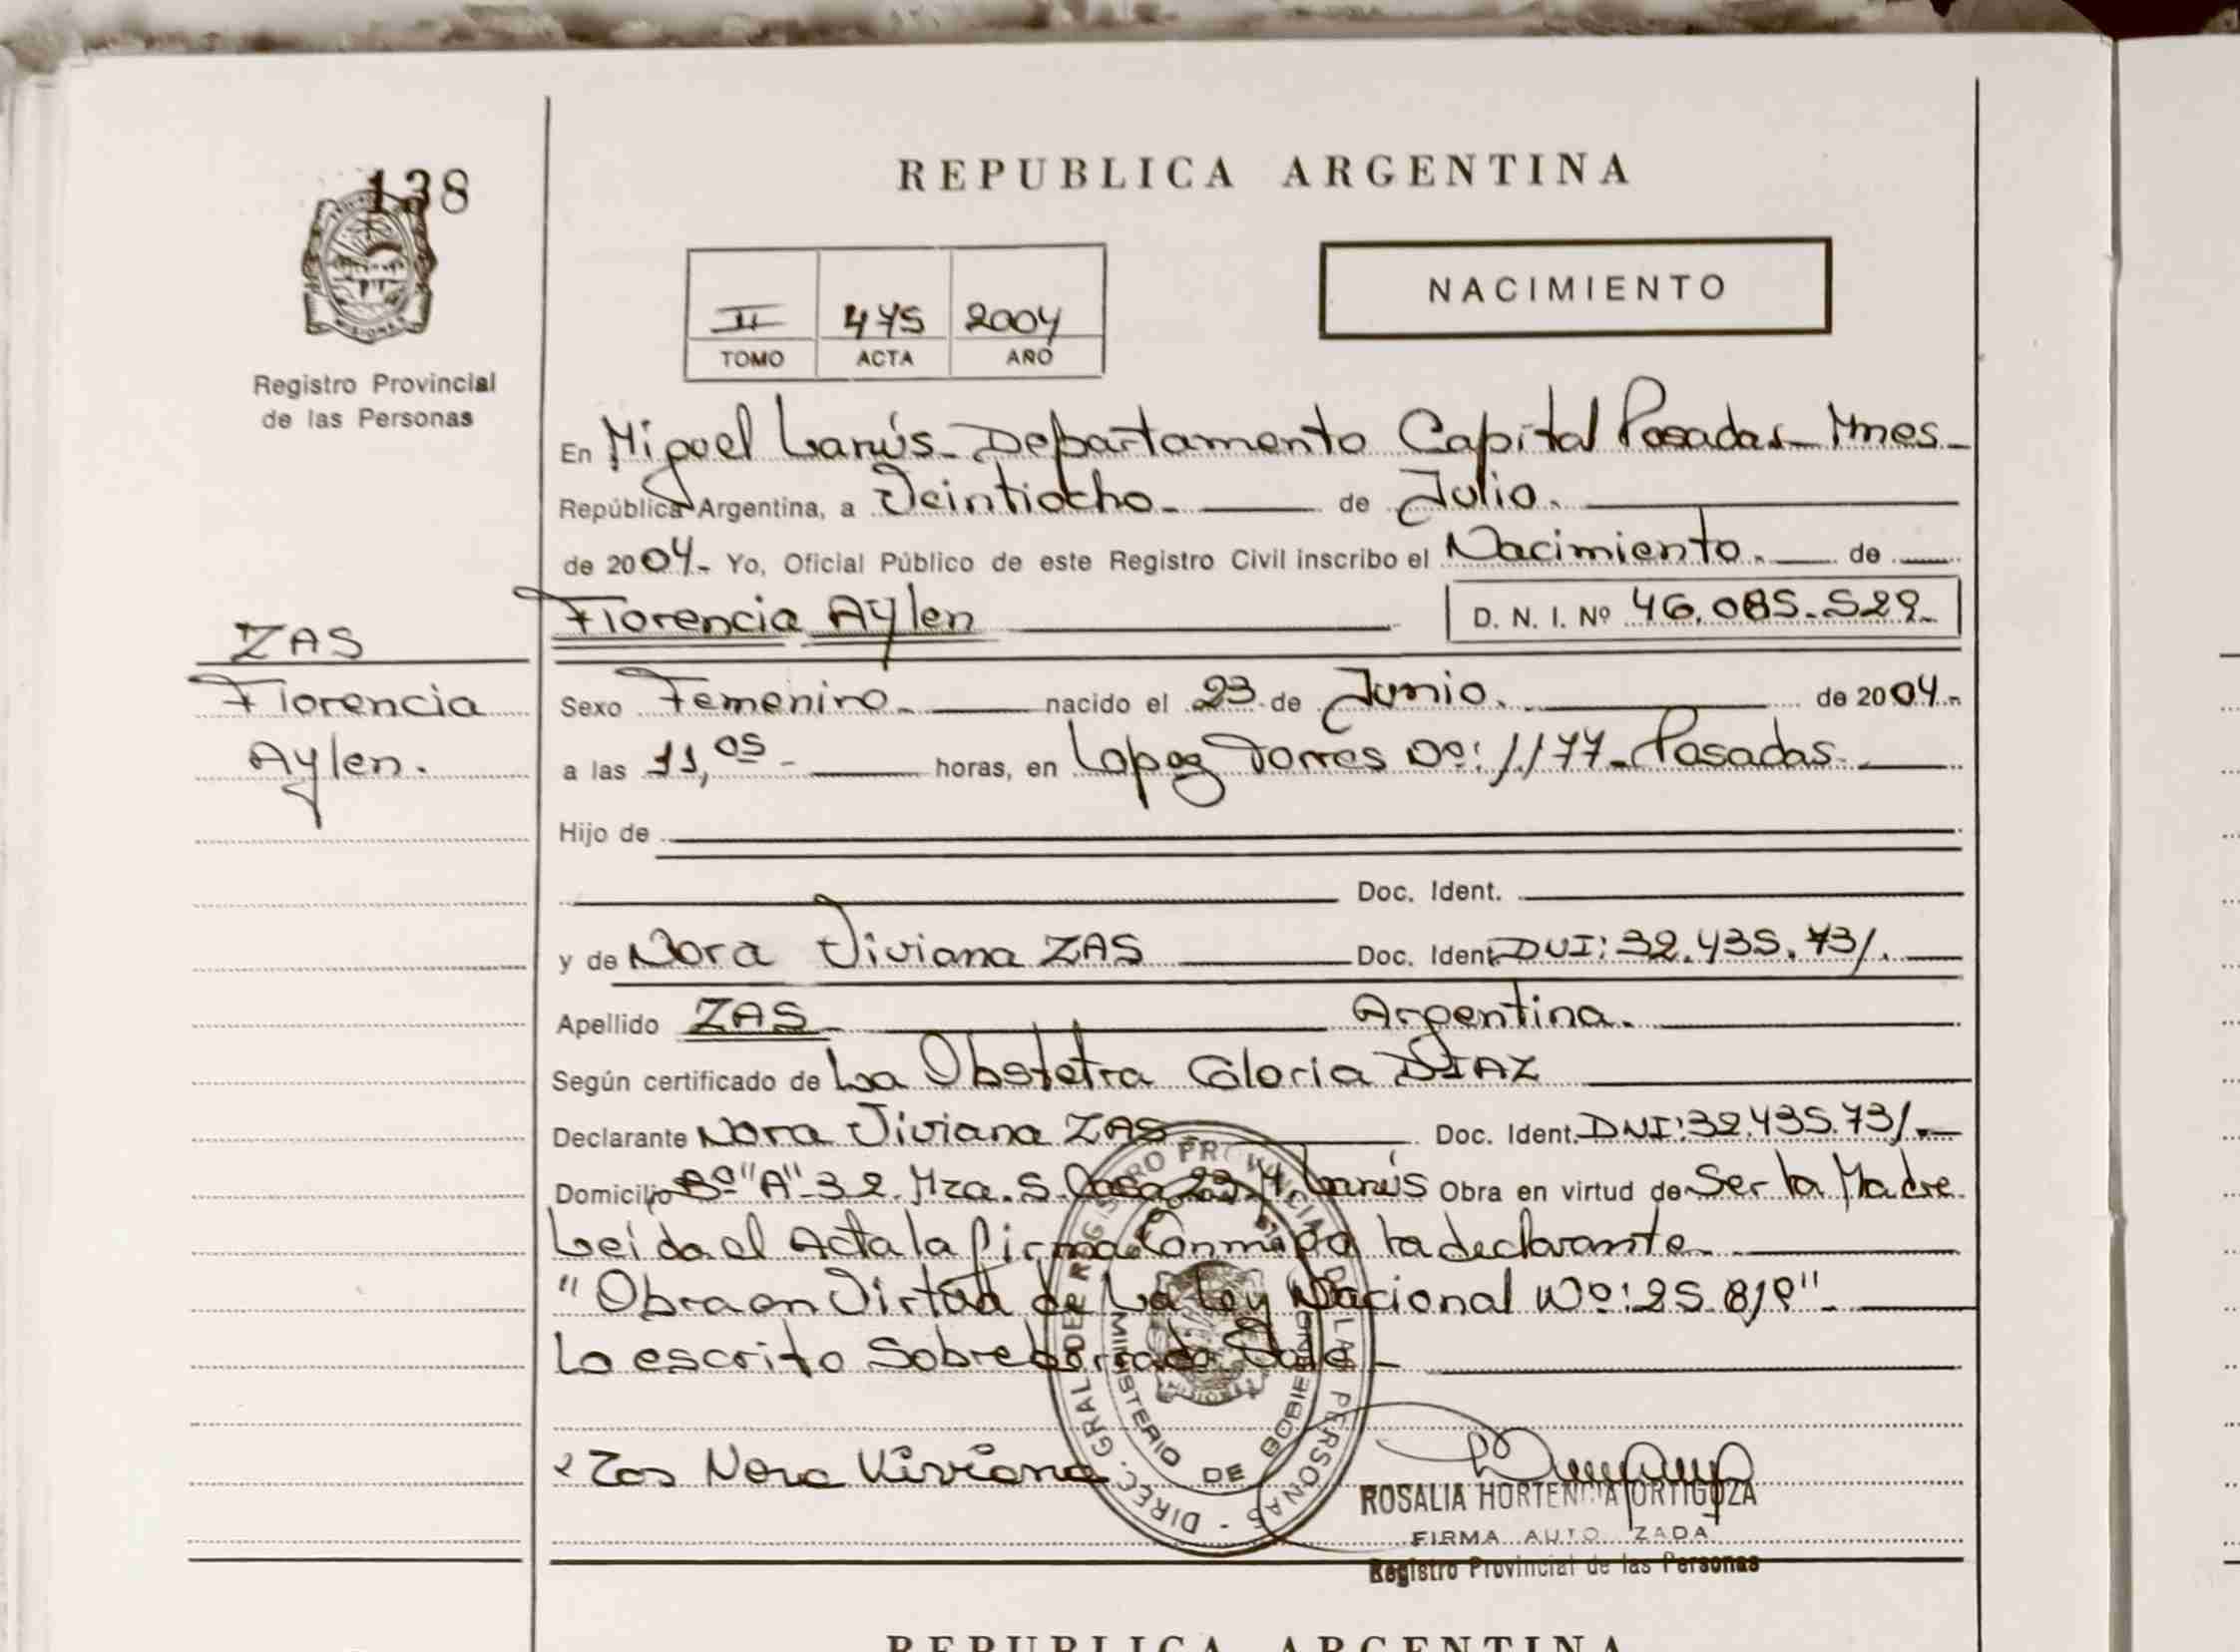 138
REPUBLICA ARGENTINA
NACIMIENTO
II 475 2004
TOMO ACTA AÑO
MISIONES
Registro Provincial
de las Personas
En Miguel Lanús - Departamento Capital Posadas - Mnes -
República Argentina, a Veintiocho - de Julio.
de 2004 - Yo, Oficial Público de este Registro Civil inscribo el Nacimiento. de
Florencia Aylen D. N. I. Nº 46.085.529 -
ZAS
Florencia
Aylen.
Sexo Femenino - nacido el 23 de Junio. de 2004 -
a las 11,05 - horas, en Lopez Torres Nº: 1177 - Posadas.
Hijo de
Doc. Ident.
y de Nora Viviana ZAS Doc. Ident. DNI: 32.435.731.
Apellido ZAS - Argentina.
Según certificado de La Obstetra Gloria DIAZ
Declarante Nora Viviana ZAS Doc. Ident. DNI: 32.435.731. -
Domicilio Bº "A" 32. Mza. 5. Casa 23. M. Lanús Obra en virtud de Ser la Madre
Leida el Acta la firma Conmigo la declarante.
"Obra en Virtud de La Ley Nacional Nº: 25.819" -
Lo escrito Sobreborrado Vale -
Zas Nora Viviana
DIREC. GRAL DE REGISTRO PROVINCIAL DE LAS PERSONAS -
MINISTERIO DE GOBIERNO
ROSALIA HORTENCIA ORTIGOZA
FIRMA AUTO ZADA
Registro Provincial de las Personas
REPUBLICA ARGENTINA